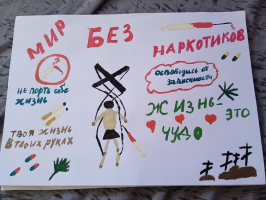 МИР БЕЗ НАРКОТИКОВ
НЕ ПОРТЬ СЕБЕ
ЖИЗНЬ
ОСВОБОДИСЬ ОТ
ЗАВИСИМОСТИ
ЖИЗНЬ-
ЭТО
ЧУДО
ТВОЯ ЖИЗНЬ
В ТВОИХ РУКАХ